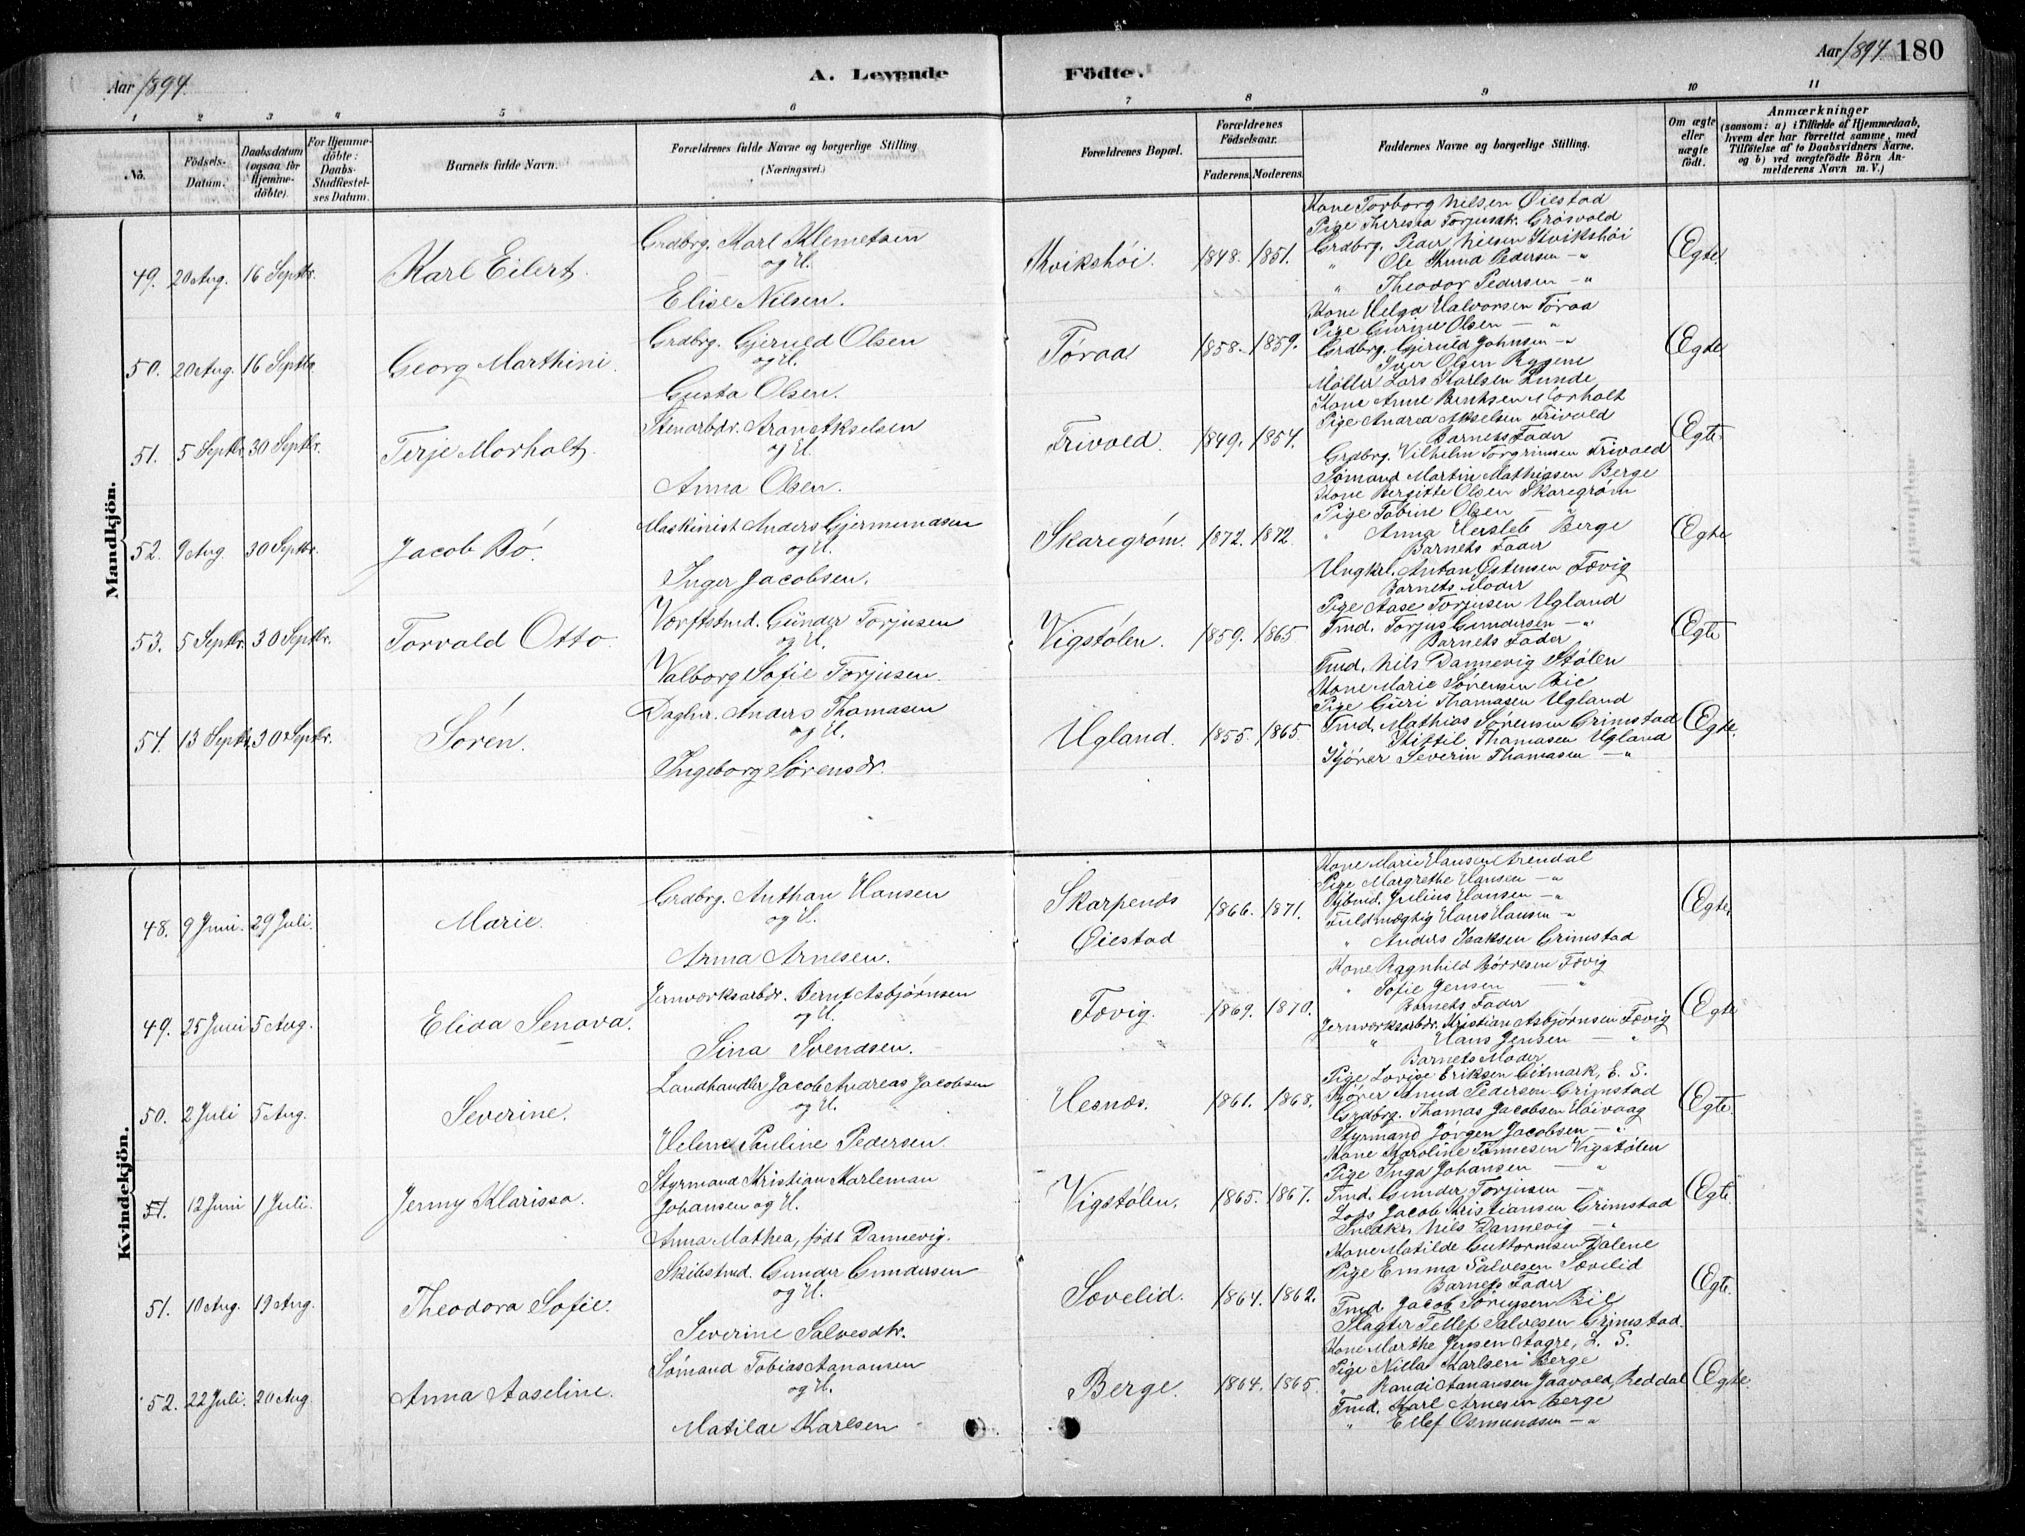 Aar 1894.
A. Levende
Födte.
Aar 1894. 180
1 2 3 4 5 6 7 8 9 10 11
No.
Födsels-Datum.
Daabsdatum (ogsaa for Hjemmedöbte).
For Hjemmedöbte: Daabs-Stadfæstelses Datum.
Barnets fulde Navn.
Forældrenes fulde Navne og borgerlige Stilling (Næringsvei.)
Forældrenes Bopæl.
Forældrenes Födselsaar.
Faderens. Moderens.
Faddernes Navne og borgerlige Stilling.
Om ægte eller uægte födt.
Anmærkninger
(saasom: a) i Tilfælde af Hjemmedaab, hvem der har forrettet samme, med Tilföielse af to Daabsvidners Navne, og b) ved uægtefödte Börn Anmelderens Navn m. V.)
Mandkjön.
49. 20 Aug. 16 Septbr. Karl Eilert.
Grdbrg. Karl Klemetsen
og H.
Elise Nilsen.
Kvikshöi. 1848. 1851.
Kone Torborg Nilsen Øiestad
Pige Theresia Torjusdtr. Grösvold
Grdbrg. Peder Nilsen Kvikshöi
" Ole Knud Pedersen — "
" Theodor Pedersen — "
Ægte.
50. 20 Aug. 16 Septbr Georg Marthini.
Grdbrg. Gjeruld Olsen
og H.
Gusta Olsen.
Töraa 1858. 1859.
Kone Helga Halvorsen Töraa
Pige Gurine Olsen — "
Grdbrg. Gjeruld Johnsen — "
" Iver Olsen Rygene
Möller Lars Karlsen Lunde
Ægte
51. 5 Septbr. 30 Septbr. Terje Morholt.
Stenarbdr. Aron Akselsen
og H.
Anna Olsen.
Frivold. 1849. 1854.
Kone Anne Berntsen Morholt
Pige Andrea Akselsen Frivold
Barnets Fader
Grdbrg. Vilhelm Torgrimsen Frivold
Sömand Martin Mathiasen Berge
Ægte
52. 9 Aug. 30 Septbr. Jacob Bó.
Maskinist Anders Gjermundsen
og H.
Inger Jacobsen.
Skaregröm. 1872. 1872.
Kone Bergitte Olsen Skaregröm
Pige Tobine Olsen — "
" Anna Hersleb Berge
Barnets Fader
Ungkrl. Anton Østensen Fævig
Ægte
53. 5 Septbr. 30 Septbr. Torvald Otto.
Værftstmd. Günder Torjusen
og H.
Valborg Sofie Torjusen.
Vigstölen. 1859. 1865
Barnets Moder
Pige Aase Torjusen Ugland
Tmd. Torjus Gundersen — "
Barnets Fader
Tmd. Nils Dannevig Stölen
Ægte
54. 13 Septbr. 30 Septbr. Sören.
Daglnr. Anders Thomasen
og H.
Ingeborg Sörensdr.
Ugland. 1855. 1865.
Kone Marie Sörensen Bie
Pige Guri Thomasen Ugland
Tmd. Mathias Sörensen Grimstad
" Kittil Thomasen Ugland
Kjörer Severin Thomasen — "
Ægte.
Kvindekjön.
48. 9 Juni. 29 Juli. Marie.
Grdbrg. Anthan Hansen
og H.
Anna Arnesen.
Skarpenæs
Øiestad
1866. 1871.
Kone Marie Hansen Arendal
Pige Margrethe Hansen — "
Julius Hansen — "
Fuldmægtig Hans Hansen — "
" Anders Isaksen Grimstad
Ægte.
49. 25 Juni 5 Aug. Elida Senova.
Jernværksarbdr. Bernt Asbjörnsen
og H.
Sina Svendsen.
Fævig. 1869. 1870.
Kone Ragnhild Börresen Fævig
" Sofie Jensen — "
Barnets Fader
Jernværksarbdr. Kristian Asbjörnsen Fævig
" Hans Jensen — "
Ægte
50. 2 Juli 5 Aug. Severine.
Landhandler Jacob Andreas Jacobsen
og H.
Helene Pauline Pedersen.
Hesnæs. 1861. 1868.
Barnets Moder
Pige Lovise Eriksen Gitmark, E. S.
Kjörer Knud Pedersen Grimstad
Grdbrg. Thomas Jacobsen Höivaag
Styrmand Jörgen Jacobsen — "
Ægte.
51. 12 Juni 1 Juli. Jenny Klarissa.
Styrmand Kristian Karleman
Johansen og H.
Anna Mathea, födt Dannevig.
Vigstölen. 1865. 1867.
Kone Karoline Tönnesen Vigstölen
Pige Inga Johansen — "
Tmd. Gunder Torjusen — "
Lods Jacob Kristiansen Grimstad
Snedkr. Nils Dannevig — "
Ægte
51. 10 Aug. 19 Aug. Theodora Sofie.
Skibstmd. Gunder Gundersen
og H.
Severine Salvesdtr.
Sævelid. 1864. 1862.
Kone Matilde Guttormsen Dalene
Pige Emma Salvesen Sævelid
Barnets Fader
Tmd. Jacob Sörensen Bie
Slagter Tellef Salvesen Grimstad.
Ægte.
52. 22 Juli. 20 Aug. Anna Aaseline.
Sömand Tobias Aanonsen
og H.
Matilde Karlsen
Berge. 1864. 1865.
Kone Marthe Jensen Aagre, L. S.
Pige Nilla Karlsen Berge
" Randi Aanonsen Jaavold, Reddal
Tmd. Karl Arnesen Berge
" Ellef Osmundsen — "
Ægte.